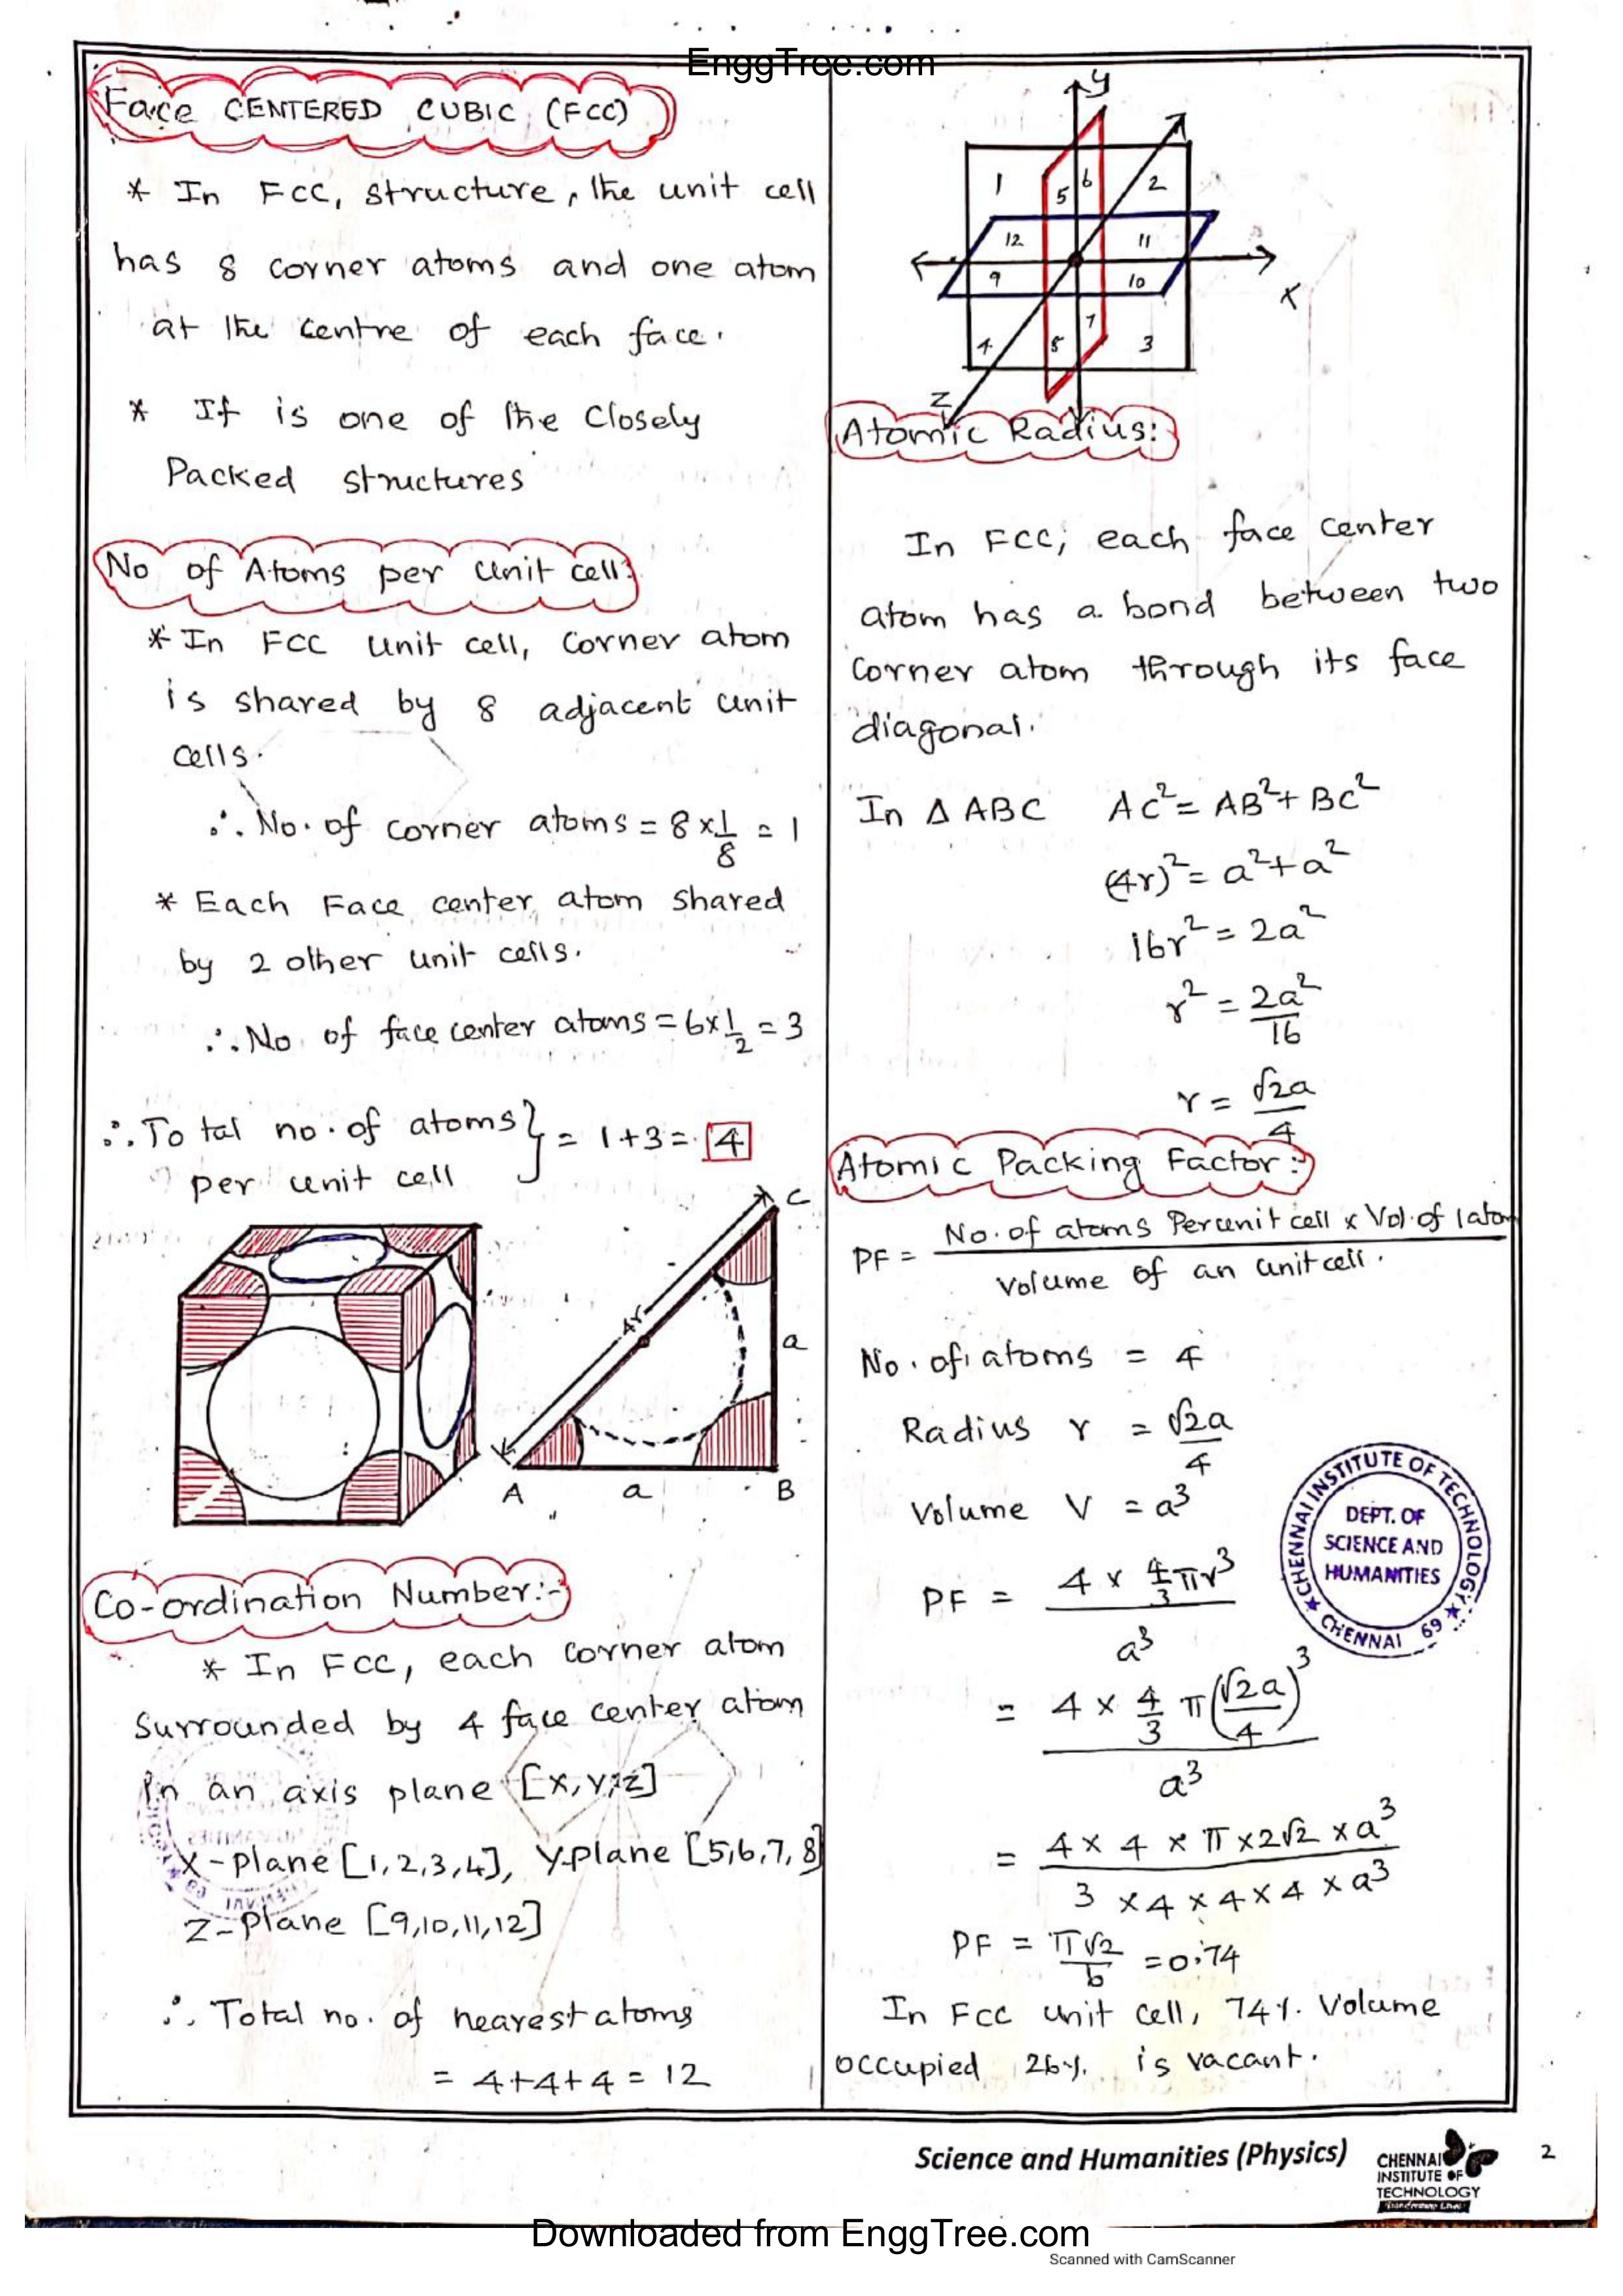 EnggTree.com
Face CENTERED CUBIC (FCC)
* In FCC, structure, the unit cell
has 8 corner atoms and one atom
at the centre of each face.
* It is one of the Closely
Packed structures
No of Atoms per Unit cell:
* In FCC unit cell, Corner atom
is shared by 8 adjacent unit
cells.
∴ No. of corner atoms = 8 × 1/8 = 1
* Each Face center atom shared
by 2 other unit cells.
∴ No of face center atoms = 6 × 1/2 = 3
∴ Total no. of atoms } = 1+3 = 4
per unit cell
C
4r
a
A a B
Co-ordination Number:-
* In FCC, each corner atom
Surrounded by 4 face center atom
in an axis plane [X, Y, Z]
X-plane [1,2,3,4], Y-plane [5,6,7,8]
Z-plane [9,10,11,12]
∴ Total no. of nearest atoms
= 4+4+4 = 12
y
1 5 6 2
12 11
9 10
X
4 8 7 3
Z
Atomic Radius:
In FCC, each face center
atom has a bond between two
corner atom through its face
diagonal.
In Δ ABC AC² = AB² + BC²
(4r)² = a² + a²
16r² = 2a²
r² = 2a²/16
r = √2a/4
Atomic Packing Factor:-
PF = No. of atoms Per unit cell × Vol. of 1 atom / Volume of an unit cell.
No. of atoms = 4
Radius r = √2a/4
Volume V = a³
PF = 4 × 4/3 πr³ / a³
= 4 × 4/3 π (√2a/4)³ / a³
= 4 × 4 × π × 2√2 × a³ / 3 × 4 × 4 × 4 × a³
PF = π√2/6 = 0.74
In FCC unit cell, 74% Volume
occupied 26% is vacant.
CHENNAI INSTITUTE OF TECHNOLOGY
DEPT. OF
SCIENCE AND
HUMANITIES
CHENNAI 69
Science and Humanities (Physics)
CHENNAI
INSTITUTE OF
TECHNOLOGY
2
Downloaded from EnggTree.com
Scanned with CamScanner